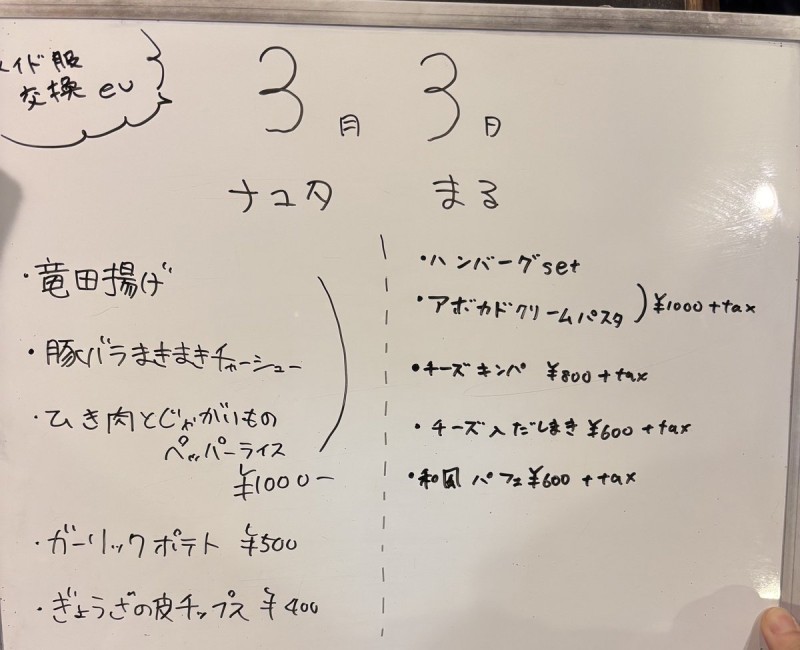 メイド服
交換 ev
3月 3日
ナユタ
・竜田揚げ
・豚バラまきまきチャーシュー
・ひき肉とじゃがいもの
ペッパーライス
¥1000-
・ガーリックポテト ¥500
・ぎょうざの皮チップス ¥400
まる
・ハンバーグset
・アボカドクリームパスタ ¥1000+tax
・チーズキンパ ¥800+tax
・チーズ入だしまき ¥600+tax
・和風パフェ ¥600+tax